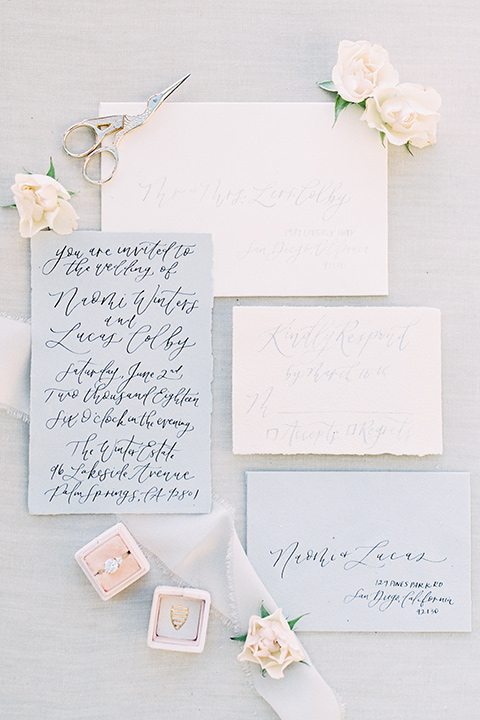 Mr + Mrs. Levi Colby
San Diego, California
you are invited to
the wedding of
Naomi Winters
and
Lucas Colby
Saturday, June 2nd
Two thousand Eighteen
Six O'clock in the evening
The Winter Estate
96 Lakeside Avenue
Palm Springs, CA 92801
Kindly Respond
by March
M
Accepts Regrets
Naomi + Lucas
129 PINES PARK RD
San Diego, California
92130